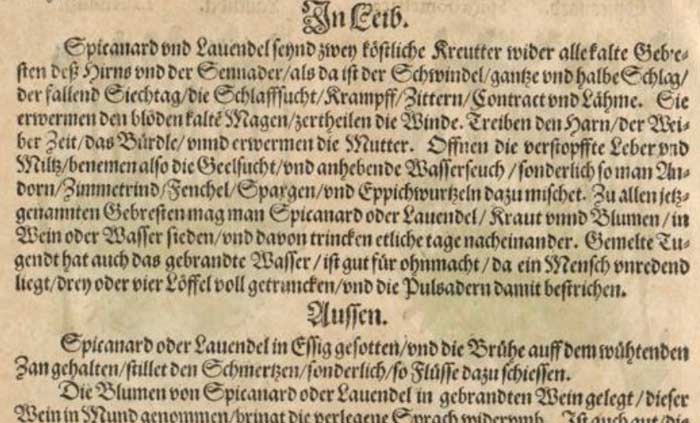 In Leib.
Spicanard vnd Lauendel seynd zwey köstliche Kreutter wider alle kalte Gebre-
sten deß Hirns vnd der Sennader/als da ist der Schwindel/gantze vnd halbe Schlag/
der fallend Siechtag/die Schlaffsucht/Krampff/Zittern/Contract vnd Lähme. Sie
erwermen den blöden kaltē Magen/zertheilen die Winde. Treiben den Harn/der Wei-
ber Zeit/das Bürdle/vnnd erwermen die Mutter. Offnen die verstopffte Leber vnd
Miltz/benemen also die Geelsucht/vnd anhebende Wasserseuch/sonderlich so man An-
dorn/Zimmetrind/Fenchel/Spargen/vnd Eppichwurtzeln dazu mischet. Zu allen jetz-
genannten Gebresten mag man Spicanard oder Lauendel/Kraut vnnd Blumen/in
Wein oder Wasser sieden/vnd davon trincken etliche tage nacheinander. Gemelte Tu-
gendt hat auch das gebrandte Wasser/ist gut für ohnmacht/da ein Mensch vnredend
liegt/drey oder vier Löffel voll getruncken/vnd die Pulsadern damit bestrichen.
Aussen.
Spicanard oder Lauendel in Essig gesotten/vnd die Brühe auff dem wühtenden
Zan gehalten/stillet den Schmertzen/sonderlich/so Flüsse dazu schiessen.
Die Blumen von Spicanard oder Lauendel in gebrandten Wein gelegt/dieser
Wein in Mund genommen/bringt die verlegene Sprach widerumb. Ist auch gut/die